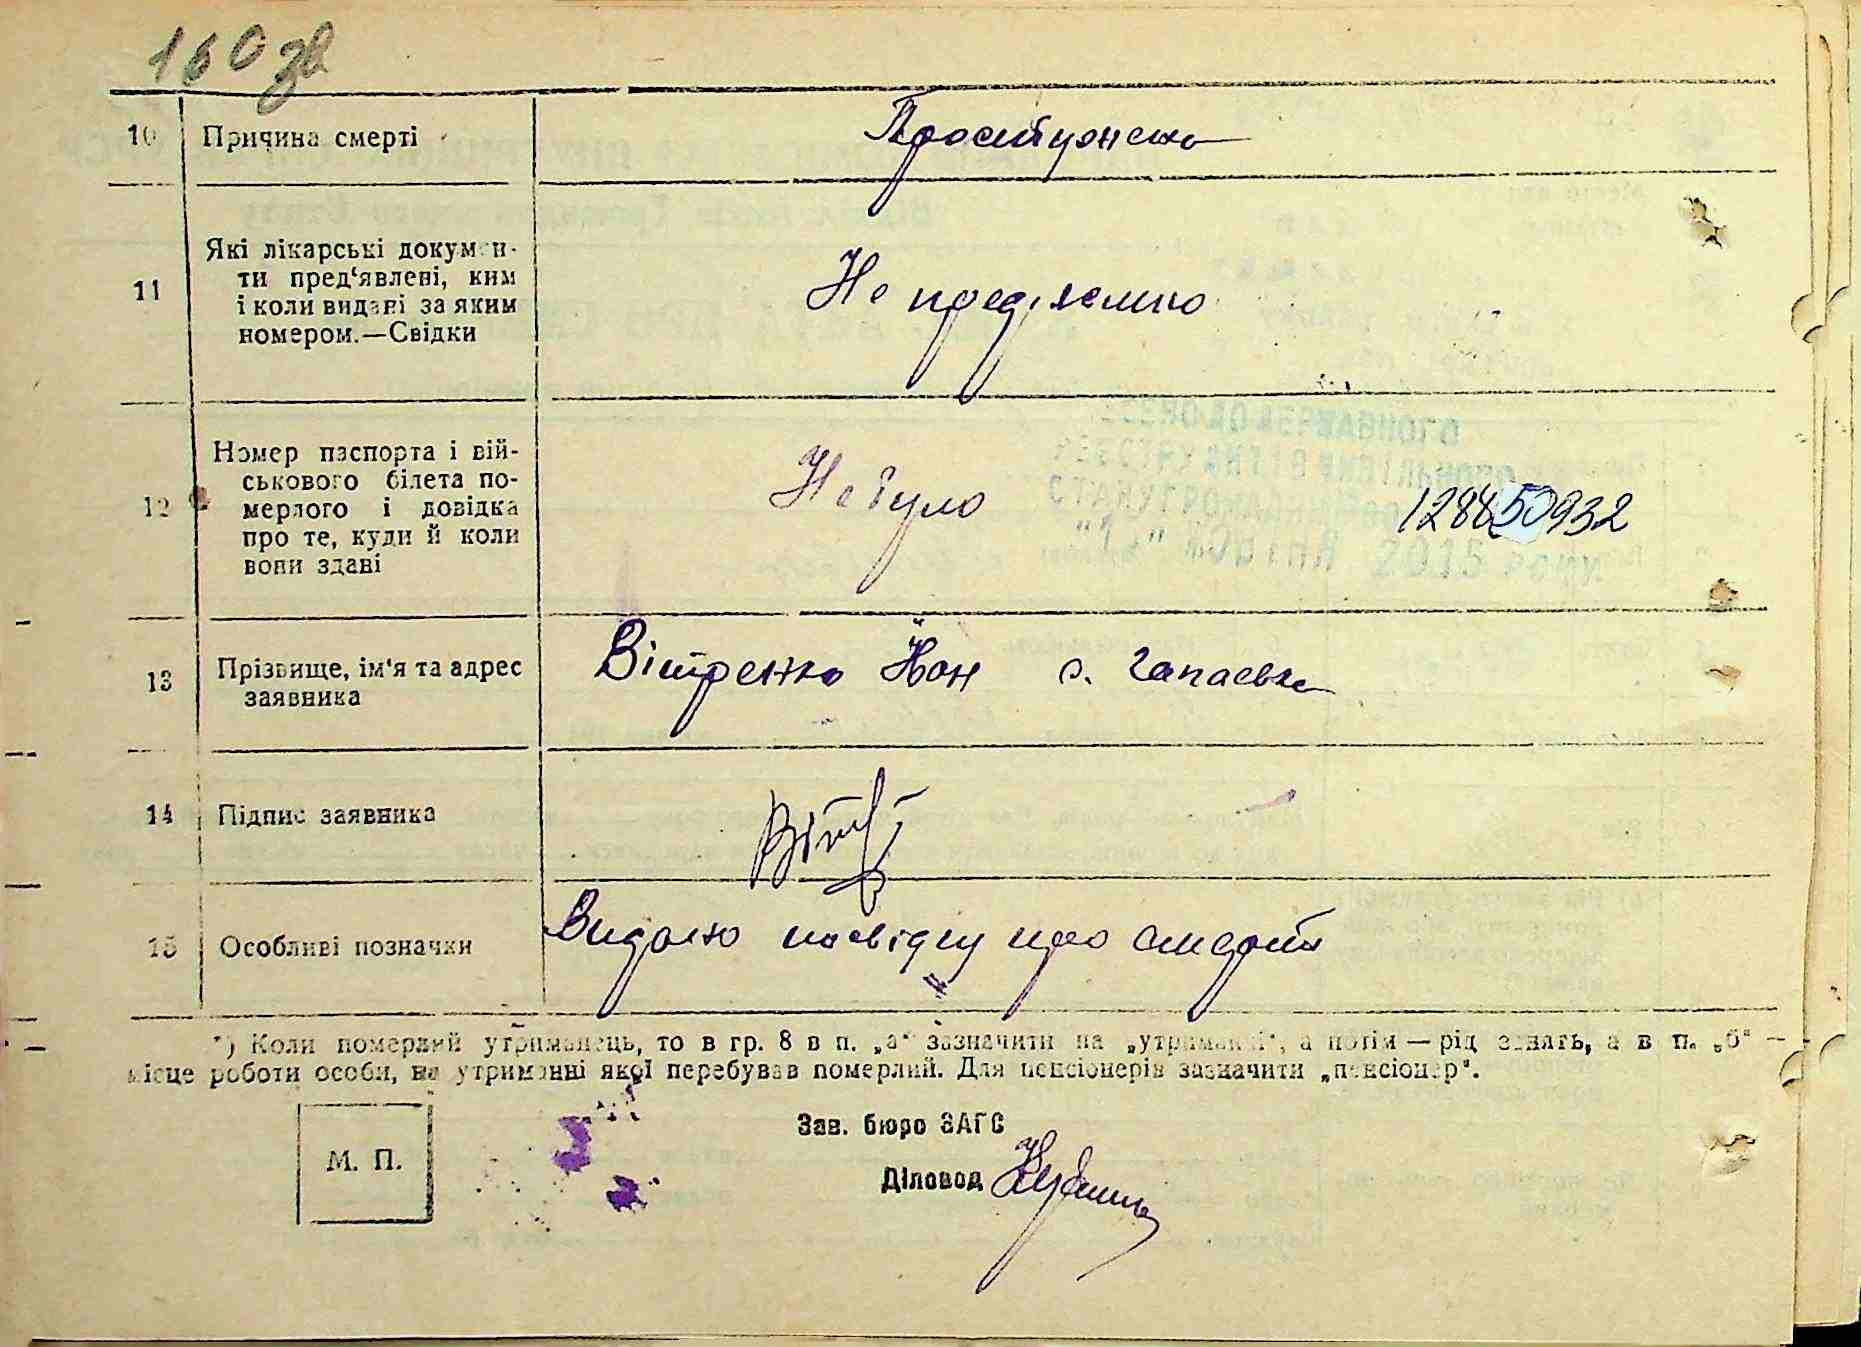 160 зв
10 Причина смерті
11 Які лікарські докумен-
ти пред'явлені, ким
і коли видані за яким
номером.—Свідки
Не предявлено
12 Номер паспорта і вій-
ськового білета по-
мерлого і довідка
про те, куди й коли
вони здані
Не було
128450932
13 Прізвище, ім'я та адрес
заявника
Вітренко Йон с. Чапаєвка
14 Підпис заявника
Віт
15 Особливі позначки
Видано посвідку про смерть
*) Коли померлий утриманець, то в гр. 8 в п. „а" зазначити на „утриманні", а потім — рід занять, а в п. „б" —
місце роботи особи, на утриманні якої перебував померлий. Для пенсіонерів зазначити „пенсіонер".
М. П.
Зав. бюро ЗАГС
Діловод